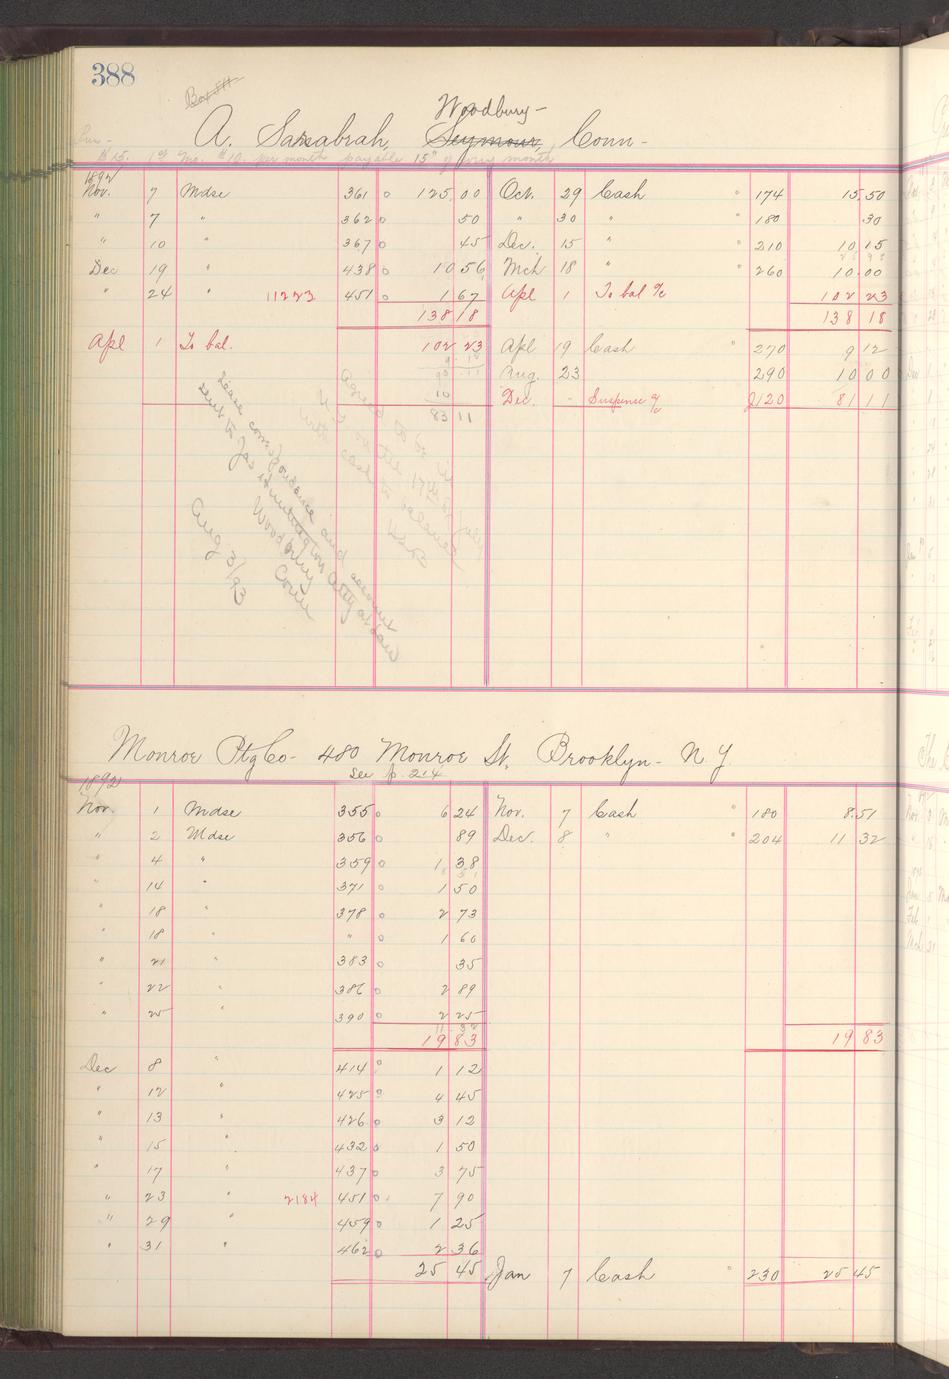 388
Box 511
Woodbury-
A. Sarrabrah, Seymour, Conn-
$15. 1st Mo. $10. per month payable 15" of every month
1892
Nov. 7 Mdse 361 125.00 Oct. 29 Cash " 174 15.50
" 7 " 362 50 " 30 " " 180 .30
" 10 " 367 45 Dec. 15 " " 210 10 15
Dec 19 " 438 10 56 Mch 18 " " 260 10.00
" 24 " 11223 451 1 67 Apl 1 To bal a/c 102 23
138 18 138 18
Apl 1 To bal. 102 23 Apl 19 Cash " 270 9 12
Aug. 23 290 10 00
Dec. - Suspense a/c 2120 81 11
83 11
correspondence and account
sent to Jas Huntington Atty at Law
Woodbury
Conn
Aug 3/93
Monroe Ptg Co- 480 Monroe St. Brooklyn- N.Y.
see p. 214
1892
Nov. 1 Mdse 355 6 24 Nov. 7 Cash " 180 8.51
" 2 Mdse 356 89 Dec. 8 " " 204 11 32
" 4 " 359 1 38
" 14 " 371 1 50
" 18 " 378 2 73
" 18 " " 1 60
" 21 " 383 35
" 22 " 386 2 89
" 25 " 390 2 25
11 32
19 83 19 83
Dec 8 " 414 1 12
" 12 " 425 4 45
" 13 " 426 3 12
" 15 " 432 1 50
" 17 " 437 3 75
" 23 " 2184 451 7 90
" 29 " 459 1 25
" 31 " 462 2 36
25 45 Jan 7 Cash " 230 25 45